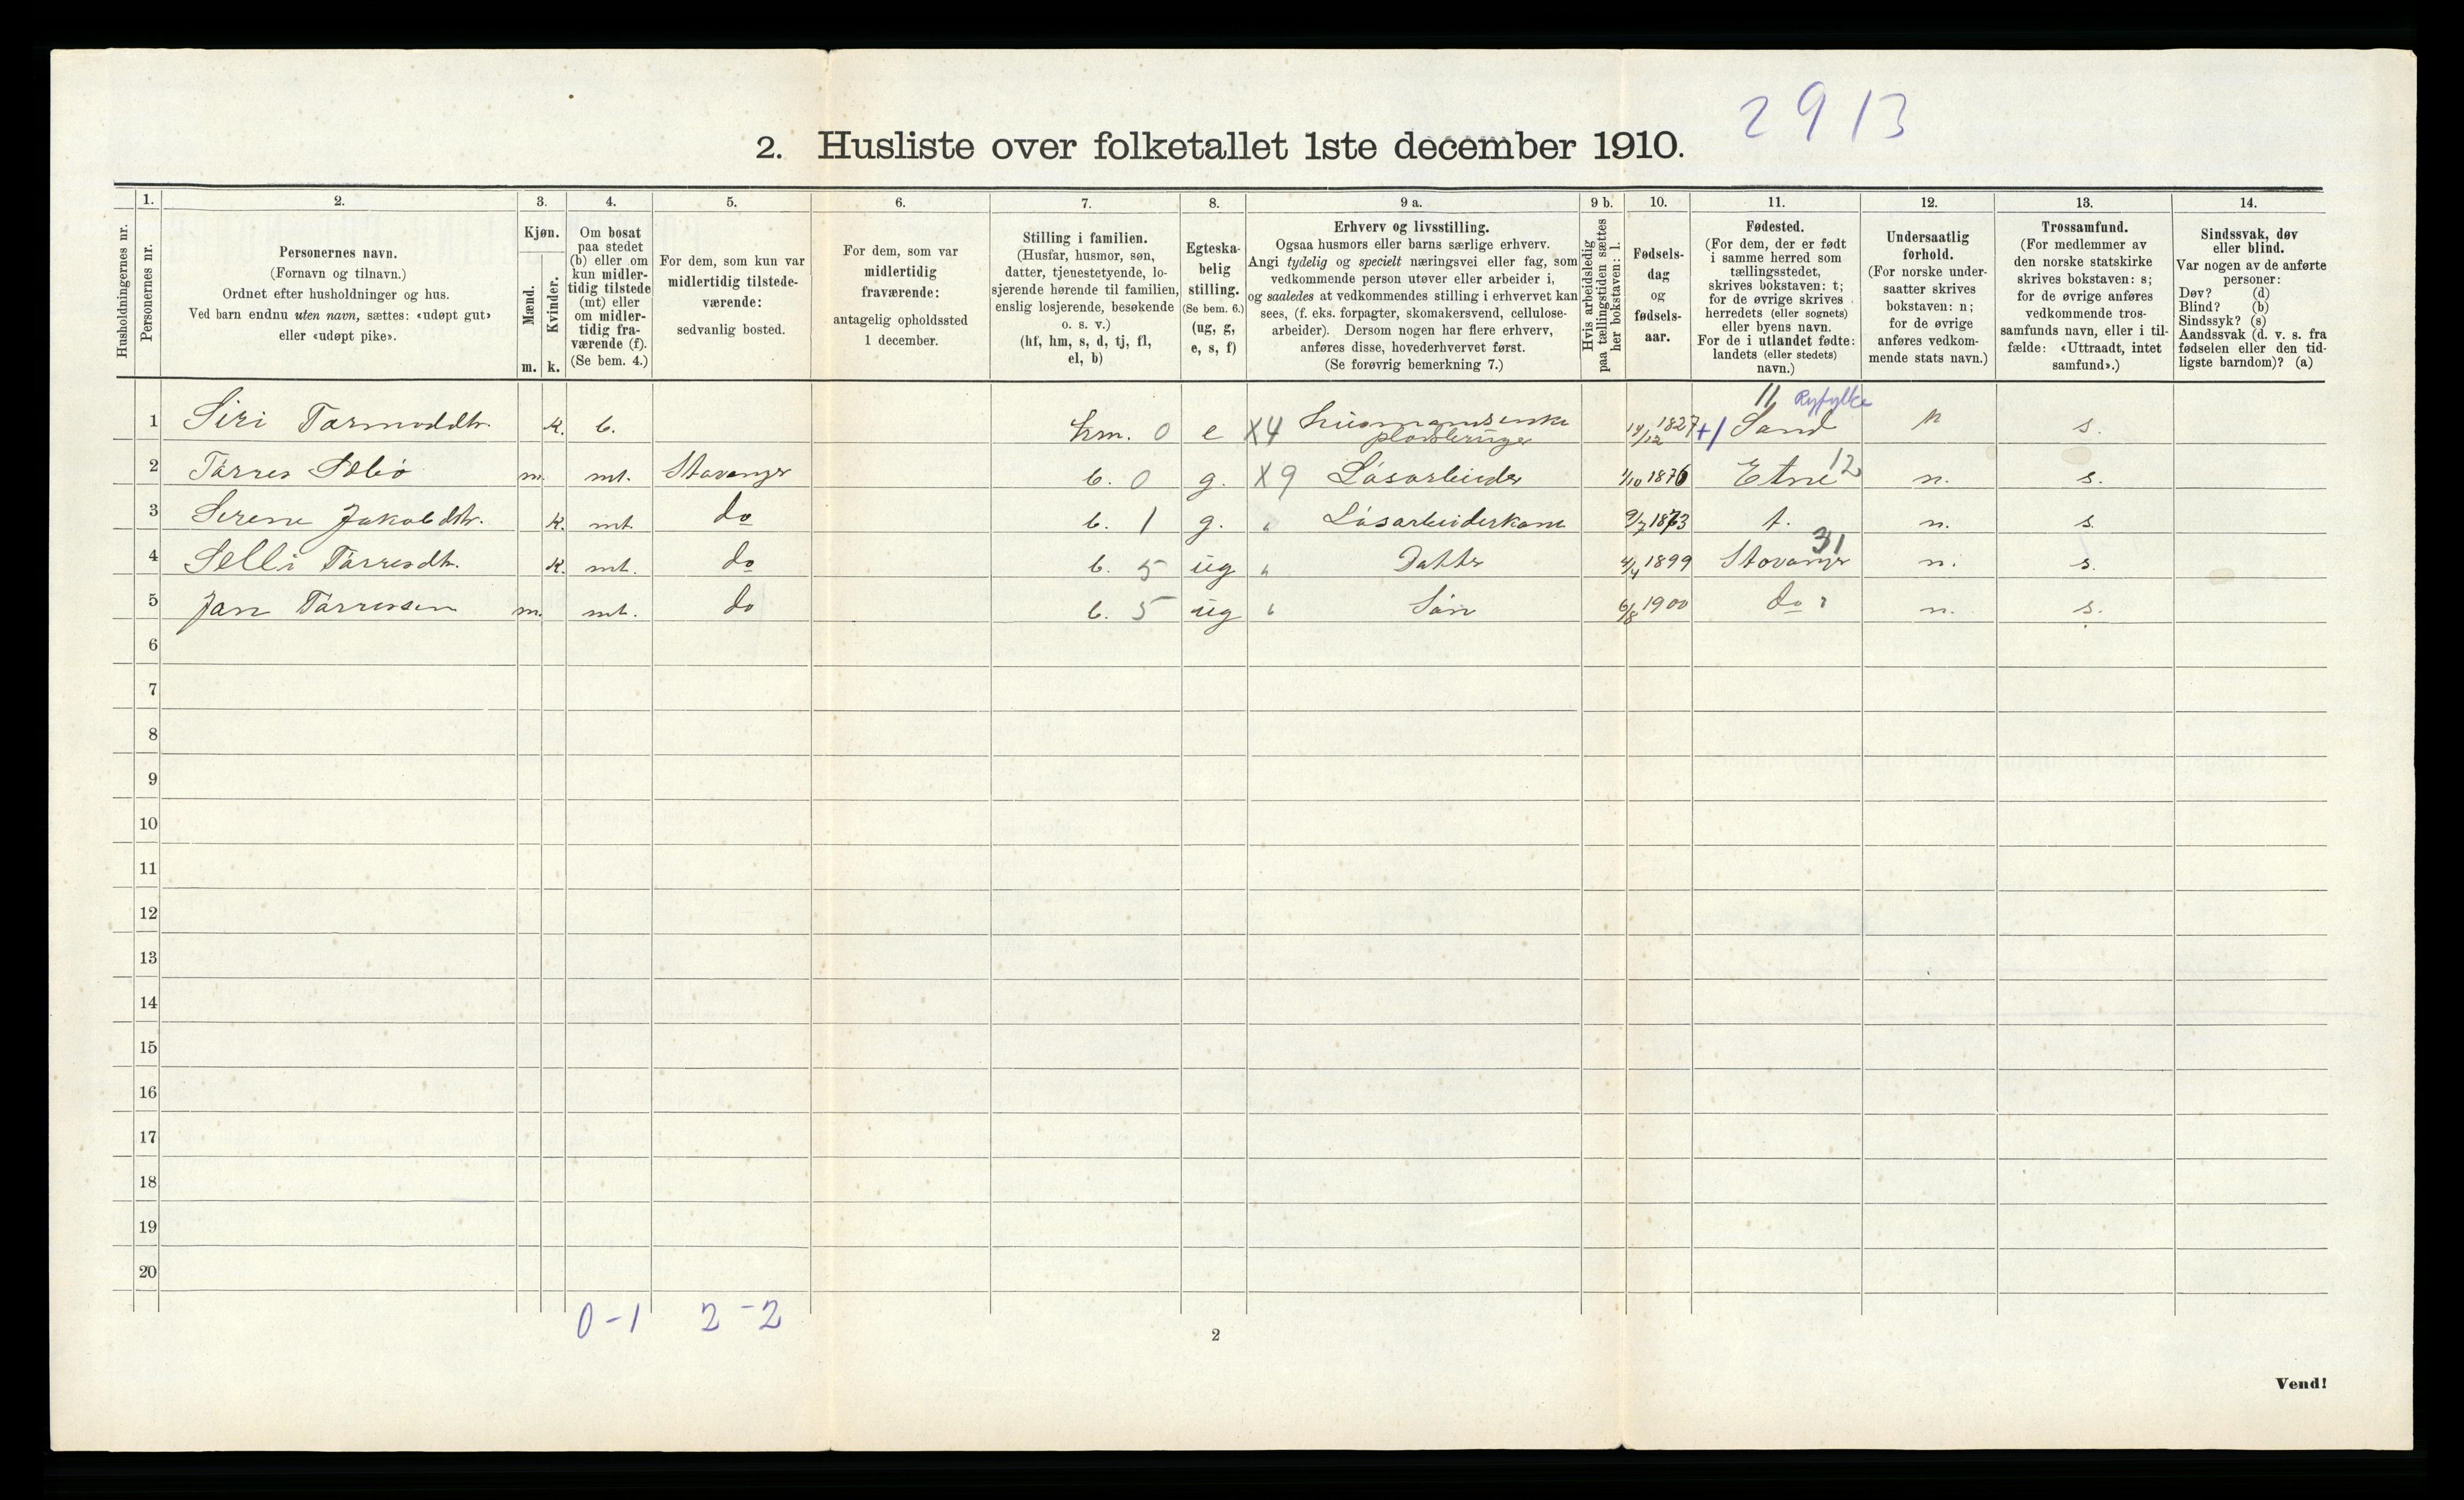 2913
2. Husliste over folketallet 1ste december 1910.
Husholdningernes nr.
1.
Personernes nr.
2.
Personernes navn.
(Fornavn og tilnavn.)
Ordnet efter husholdninger og hus.
Ved barn endnu uten navn, sættes: «udøpt gut»
eller «udøpt pike».
3.
Kjøn.
Mænd.
Kvinder.
m. k.
4.
Om bosat
paa stedet
(b) eller om
kun midler-
tidig tilstede
(mt) eller
om midler-
tidig fra-
værende (f).
(Se bem. 4.)
5.
For dem, som kun var
midlertidig tilstede-
værende:
sedvanlig bosted.
6.
For dem, som var
midlertidig
fraværende:
antagelig opholdssted
1 december.
7.
Stilling i familien.
(Husfar, husmor, søn,
datter, tjenestetyende, lo-
sjerende hørende til familien,
enslig losjerende, besøkende
o. s. v.)
(hf, hm, s, d, tj, fl,
el, b)
8.
Egteska-
belig
stilling.
(Se bem. 6.)
(ug, g,
e, s, f)
9 a.
Erhverv og livsstilling.
Ogsaa husmors eller barns særlige erhverv.
Angi tydelig og specielt næringsvei eller fag, som
vedkommende person utøver eller arbeider i,
og saaledes at vedkommendes stilling i erhvervet kan
sees, (f. eks. forpagter, skomakersvend, cellulose-
arbeider). Dersom nogen har flere erhverv,
anføres disse, hovederhvervet først.
(Se forøvrig bemerkning 7.)
9 b.
Hvis arbeidsledig
paa tællingstiden sættes
her bokstaven: l.
10.
Fødsels-
dag
og
fødsels-
aar.
11.
Fødested.
(For dem, der er født
i samme herred som
tællingsstedet,
skrives bokstaven: t;
for de øvrige skrives
herredets (eller sognets)
eller byens navn.
For de i utlandet fødte:
landets (eller stedets)
navn.)
12.
Undersaatlig
forhold.
(For norske under-
saatter skrives
bokstaven: n;
for de øvrige
anføres vedkom-
mende stats navn.)
13.
Trossamfund.
(For medlemmer av
den norske statskirke
skrives bokstaven: s;
for de øvrige anføres
vedkommende tros-
samfunds navn, eller i til-
fælde: «Uttraadt, intet
samfund».)
14.
Sindssvak, døv
eller blind.
Var nogen av de anførte
personer:
Døv? (d)
Blind? (b)
Sindssyk? (s)
Aandssvak (d. v. s. fra
fødselen eller den tid-
ligste barndom)? (a)
11 Ryfylke
1 Siri Tormoddtr. k. b. hm. 0 e X4 Husmandsenke 1827 +1 Sand n s.
2 Tørres m. mt. Stavanger b. 0 g. X9 Løsarbeider 1876 Etne 12 n. s.
3 Serene Jakobdtr. k. mt. do b. 1 g. " Løsarbeiderkone 9/7 1873 t. n. s.
31
4 Selli Tørresdtr. k. mt. do b. 5 ug " Datter 4/4 1899 Stavanger n. s.
5 Jan Tørressen m. mt. do b. 5 ug " Søn 6/8 1900 do n. s.
6
7
8
9
10
11
12
13
14
15
16
17
18
19
20
0-1 2-2
2
Vend!